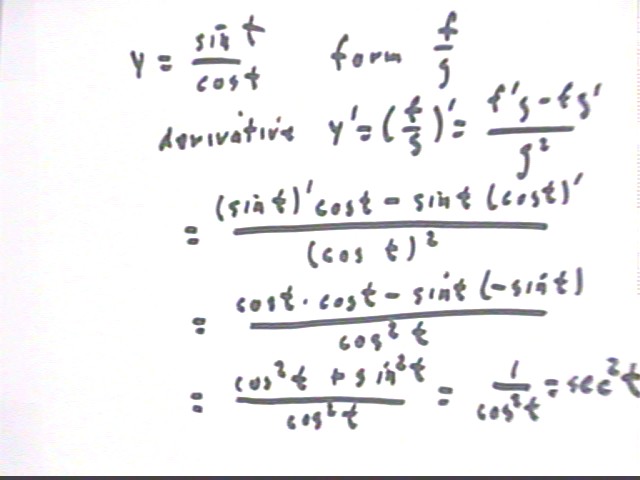 y = sin t / cos t form f/g
derivative y' = (f/g)' = f'g - fg' / g²
= (sin t)' cos t - sin t (cos t)' / (cos t)²
= cos t · cos t - sin t (- sin t) / cos² t
= cos² t + sin² t / cos² t = 1 / cos² t = sec² t